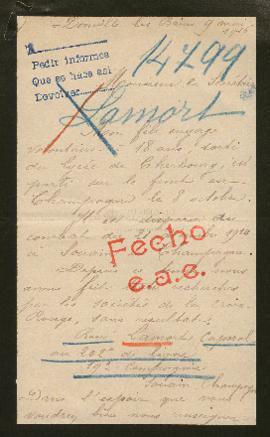 Donville les Bains 9 mai
1916
Pedir informes
Que se hace así
Devolver
14799
Monsieur le Secrétaire
Lamort
Mon fils engagé
volontaire 18 ans, sorti
du lycée de Cherbourg, est
parti sur le front en
Champagne le 8 octobre.
Il est disparu au
combat du
à Souain Champagne.
Depuis ce nous
avons fait recherches
par les sociétés de la Croix-
Rouge, sans résultat.
Fecho
e.a.e.
René Lamort Caporal
au 202e de ligne
19e Compagnie
Souain Champagne
Dans l'espoir que vous
voudrez bien nous renseigner